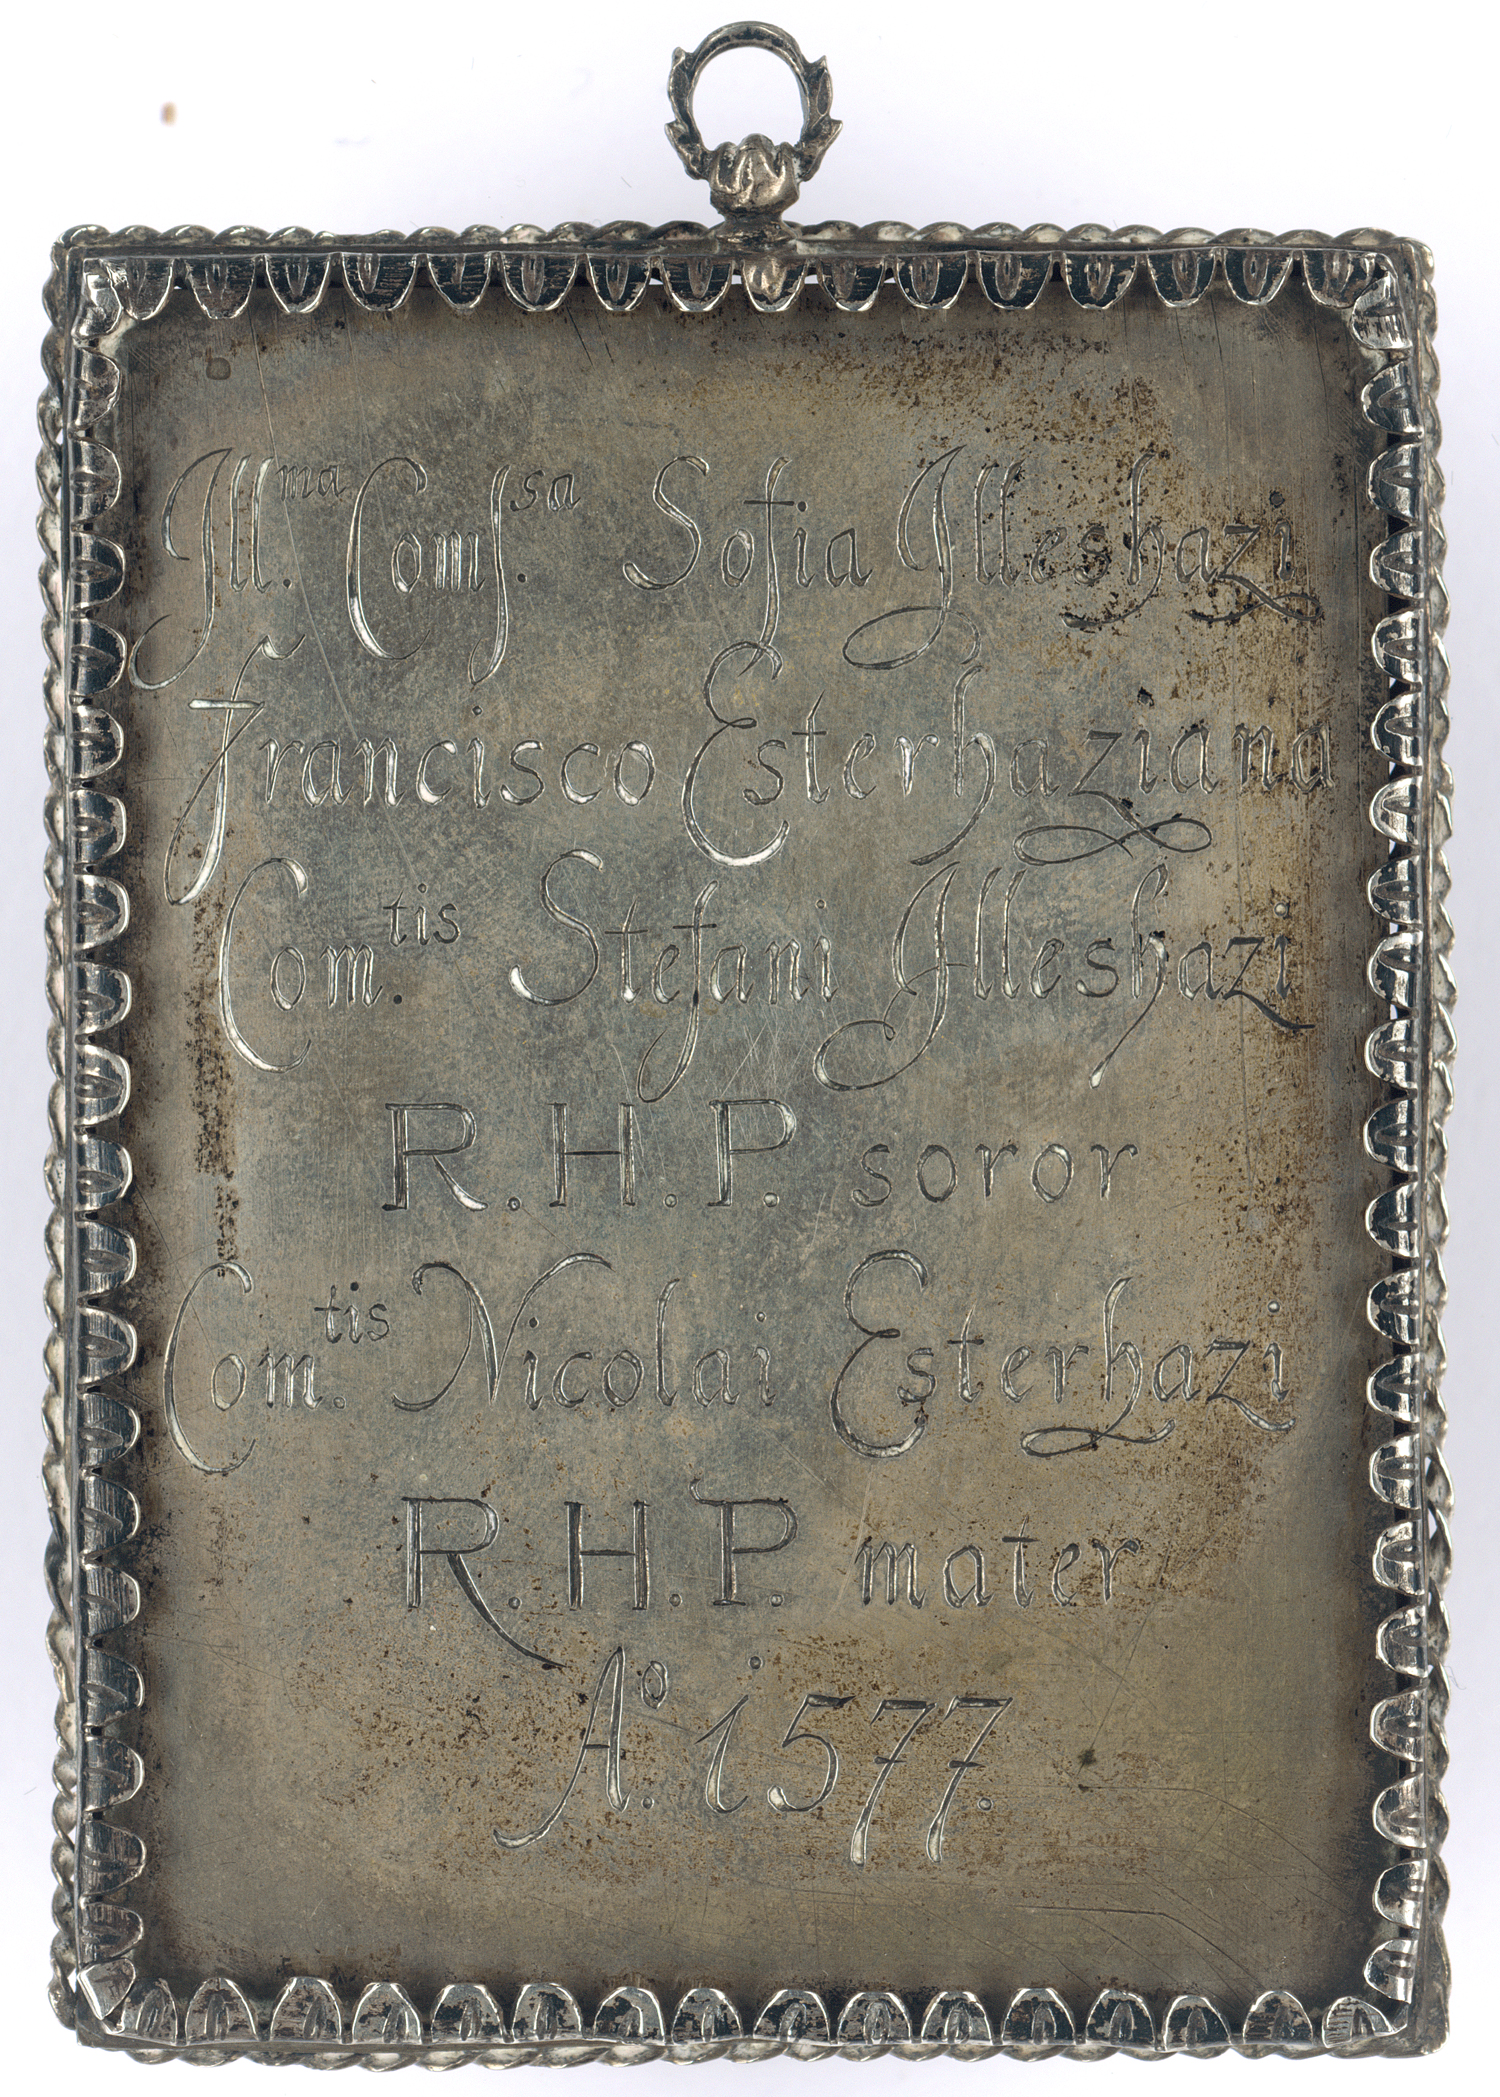 Jll.ᵐᵃ Comſ.ˢᵃ Sofia Jlleshazi
Francisco Esterhaziana
Com.ᵗⁱˢ Stefani Jlleshazi
R.H.P. soror
Com.ᵗⁱˢ Nicolai Esterhazi
R.H.P. mater
Aº. i577.